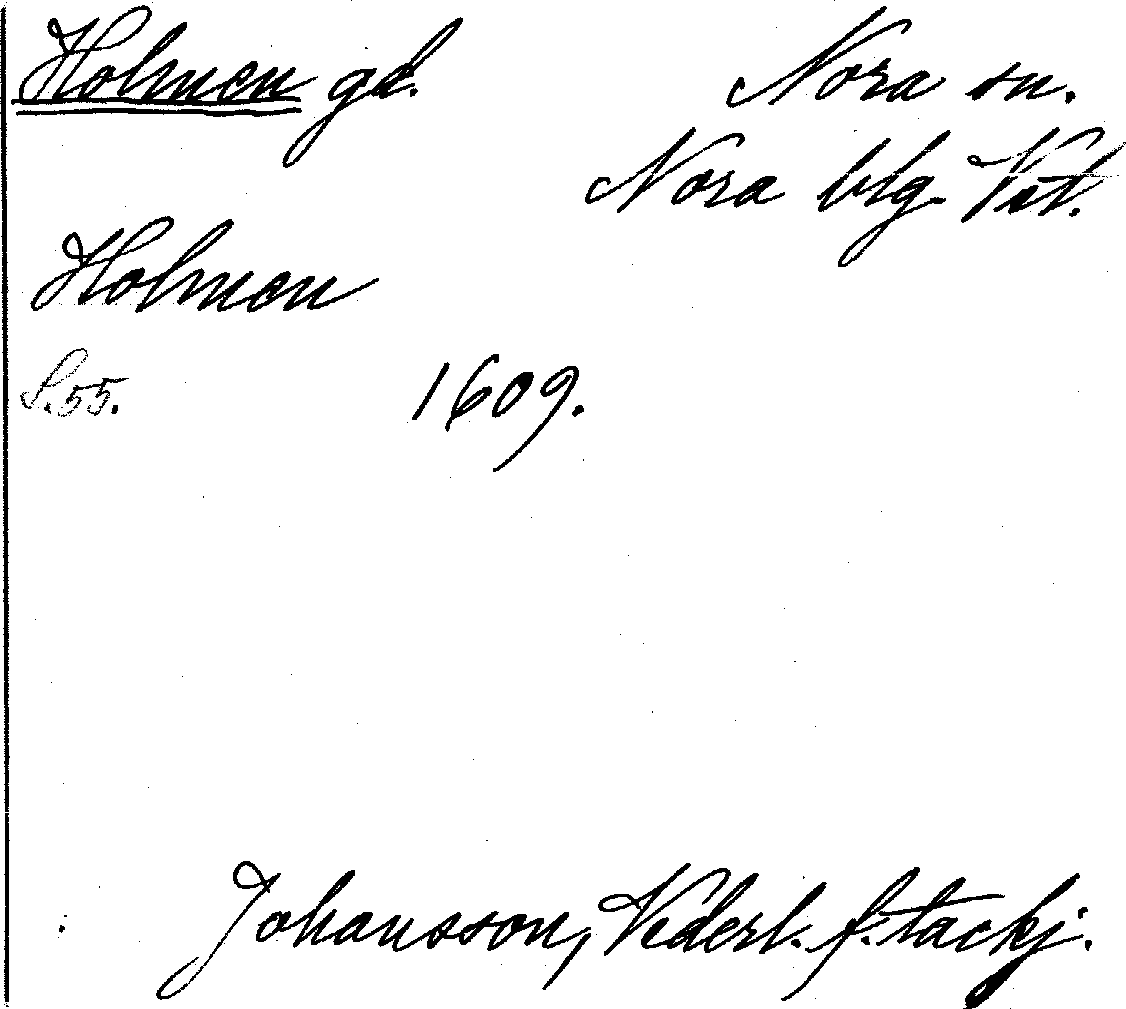 Holmen gd. Nora sn.
Nora blg. Vst.
Holmen
S.55. 1609.
Johansson, Vederl. f. tackj.